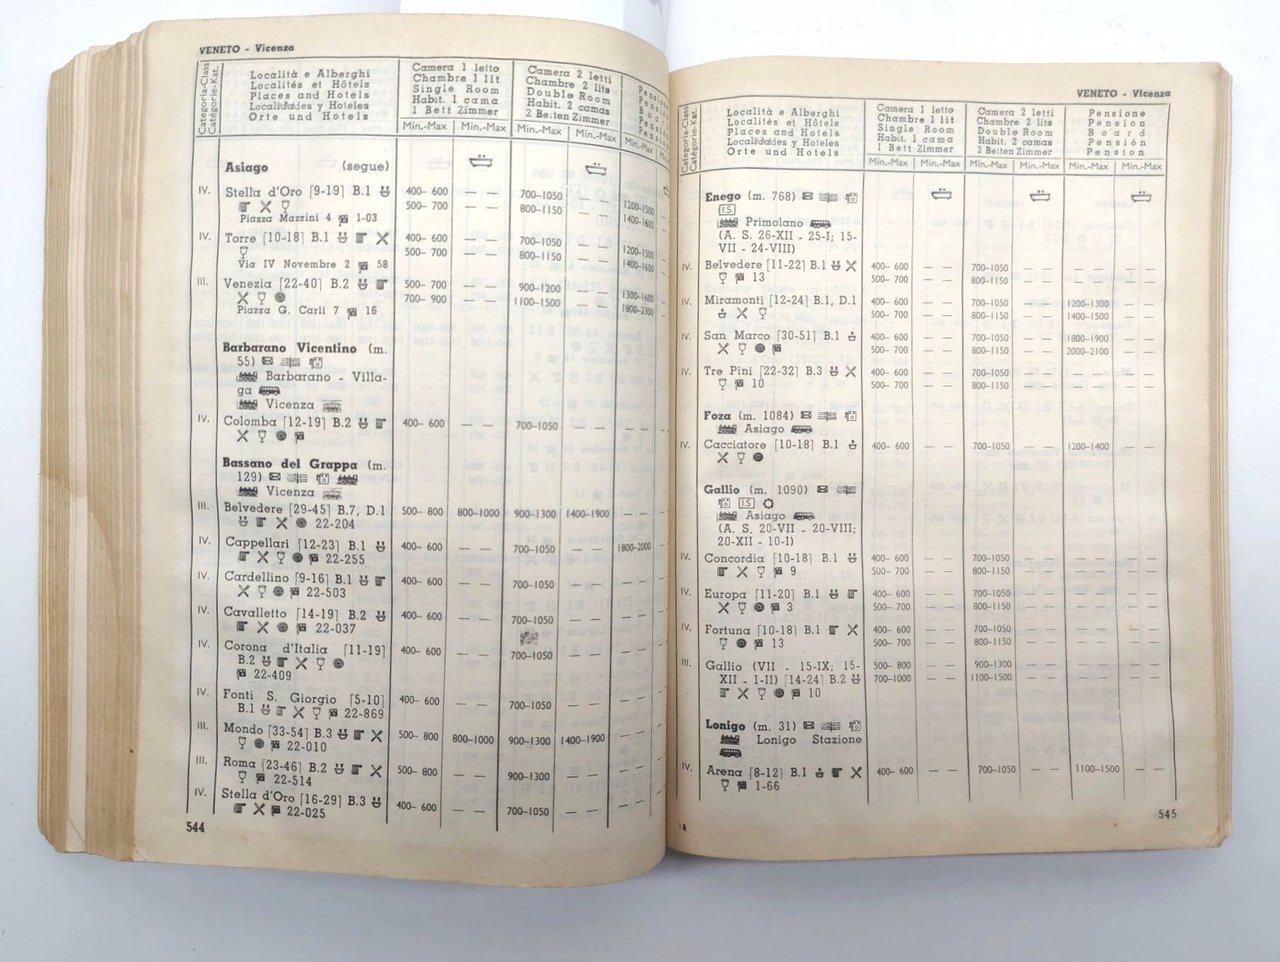 VENETO - Vicenza
Categoria-Class
Catégorie-Kat.
Località e Alberghi
Localités et Hôtels
Places and Hotels
Localidades y Hoteles
Orte und Hotels
Camera 1 letto
Chambre 1 lit
Single Room
Habit. 1 cama
1 Bett Zimmer
Camera 2 letti
Chambre 2 lits
Double Room
Habit. 2 camas
2 Betten Zimmer
Min.-Max Min.-Max Min.-Max Min.-Max Min.-Max
Asiago (segue)
IV. Stella d'Oro [9-19] B.1 400– 600 — — 700–1050 — —
500– 700 — — 800–1150 — — 1200–1500
Piazza Mazzini 4 1-03 1400–1600
IV. Torre [10-18] B.1 400– 600 — — 700–1050 — —
500– 700 — — 800–1150 — — 1200–1500
Via IV Novembre 2 58 1400–1600
III. Venezia [22-40] B.2 500– 700 — — 900–1200 — —
700– 900 — — 1100–1500 — — 1300–1600
Piazza G. Carli 7 16 1800–2300
Barbarano Vicentino (m.
55)
Barbarano - Villa-
ga
Vicenza
IV. Colomba [12-19] B.2 400– 600 — — 700–1050 — — — —
Bassano del Grappa (m.
129)
Vicenza
III. Belvedere [29-45] B.7, D.1 500– 800 800–1000 900–1300 1400–1900 — —
22-204
IV. Cappellari [12-23] B.1 400– 600 — — 700–1050 — — 1800–2000
22-255
IV. Cardellino [9-16] B.1 400– 600 — — 700–1050 — — — —
22-503
IV. Cavalletto [14-19] B.2 400– 600 — — 700–1050 — — — —
22-037
IV. Corona d'Italia [11-19] 400– 600 — — 700–1050 — — — —
B.2
22-409
IV. Fonti S. Giorgio [5-10] 400– 600 — — 700–1050 — — — —
B.1 22-869
III. Mondo [33-54] B.3 500– 800 800–1000 900–1300 1400–1900 — —
22-010
III. Roma [23-46] B.2 500– 800 — — 900–1300 — — — —
22-514
IV. Stella d'Oro [16-29] B.3 400– 600 — — 700–1050 — — — —
22-025
544
VENETO - Vicenza
Categoria-Class
Catégorie-Kat.
Località e Alberghi
Localités et Hôtels
Places and Hotels
Localidades y Hoteles
Orte und Hotels
Camera 1 letto
Chambre 1 lit
Single Room
Habit. 1 cama
1 Bett Zimmer
Camera 2 letti
Chambre 2 lits
Double Room
Habit. 2 camas
2 Betten Zimmer
Pensione
Pension
Board
Pensión
Pension
Min.-Max Min.-Max Min.-Max Min.-Max Min.-Max Min.-Max
Enego (m. 768)
I.S
Primolano
(A. S. 26-XII - 25-I; 15-
VII - 24-VIII)
IV. Belvedere [11-22] B.1 400– 600 — — 700–1050 — — — — — —
13 500– 700 — — 800–1150 — — — — — —
IV. Miramonti [12-24] B.1, D.1 400– 600 — — 700–1050 — — 1200–1300 — —
500– 700 — — 800–1150 — — 1400–1500 — —
IV. San Marco [30-51] B.1 400– 600 — — 700–1050 — — 1800–1900 — —
500– 700 — — 800–1150 — — 2000–2100 — —
IV. Tre Pini [22-32] B.3 400– 600 — — 700–1050 — — — — — —
10 500– 700 — — 800–1150 — — — — — —
Foza (m. 1084)
Asiago
IV. Cacciatore [10-18] B.1 400– 600 — — 700–1050 — — 1200–1400 — —
Gallio (m. 1090)
I.S
Asiago
(A. S. 20-VII - 20-VIII;
20-XII - 10-I)
IV. Concordia [10-18] B.1 400– 600 — — 700–1050 — — — — — —
9 500– 700 — — 800–1150 — — — — — —
IV. Europa [11-20] B.1 400– 600 — — 700–1050 — — — — — —
3 500– 700 — — 800–1150 — — — — — —
IV. Fortuna [10-18] B.1 400– 600 — — 700–1050 — — — — — —
13 500– 700 — — 800–1150 — — — — — —
III. Gallio (VII - 15-IX; 15- 500– 800 — — 900–1300 — — — — — —
XII - 1-II) [14-24] B.2 700–1000 — — 1100–1500 — — — — — —
10
Lonigo (m. 31)
Lonigo Stazione
IV. Arena [8-12] B.1 400– 600 — — 700–1050 — — 1100–1500 — —
1-66
545